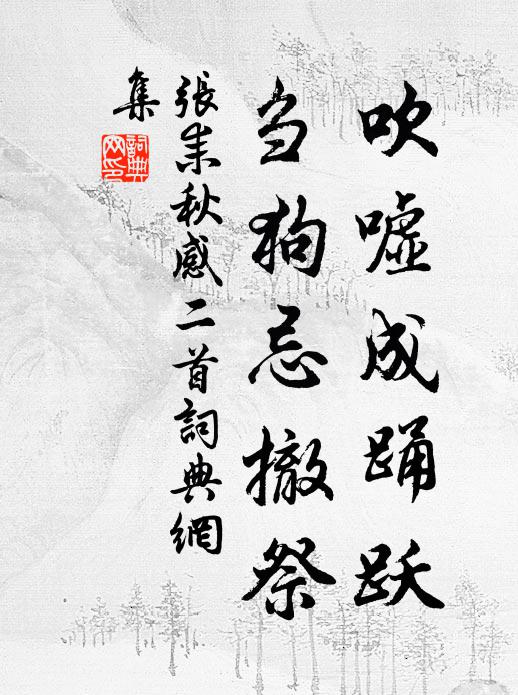 吹噓成踊跃
刍狗忌撤祭
張耒秋感二首詞典網
集
詞典網